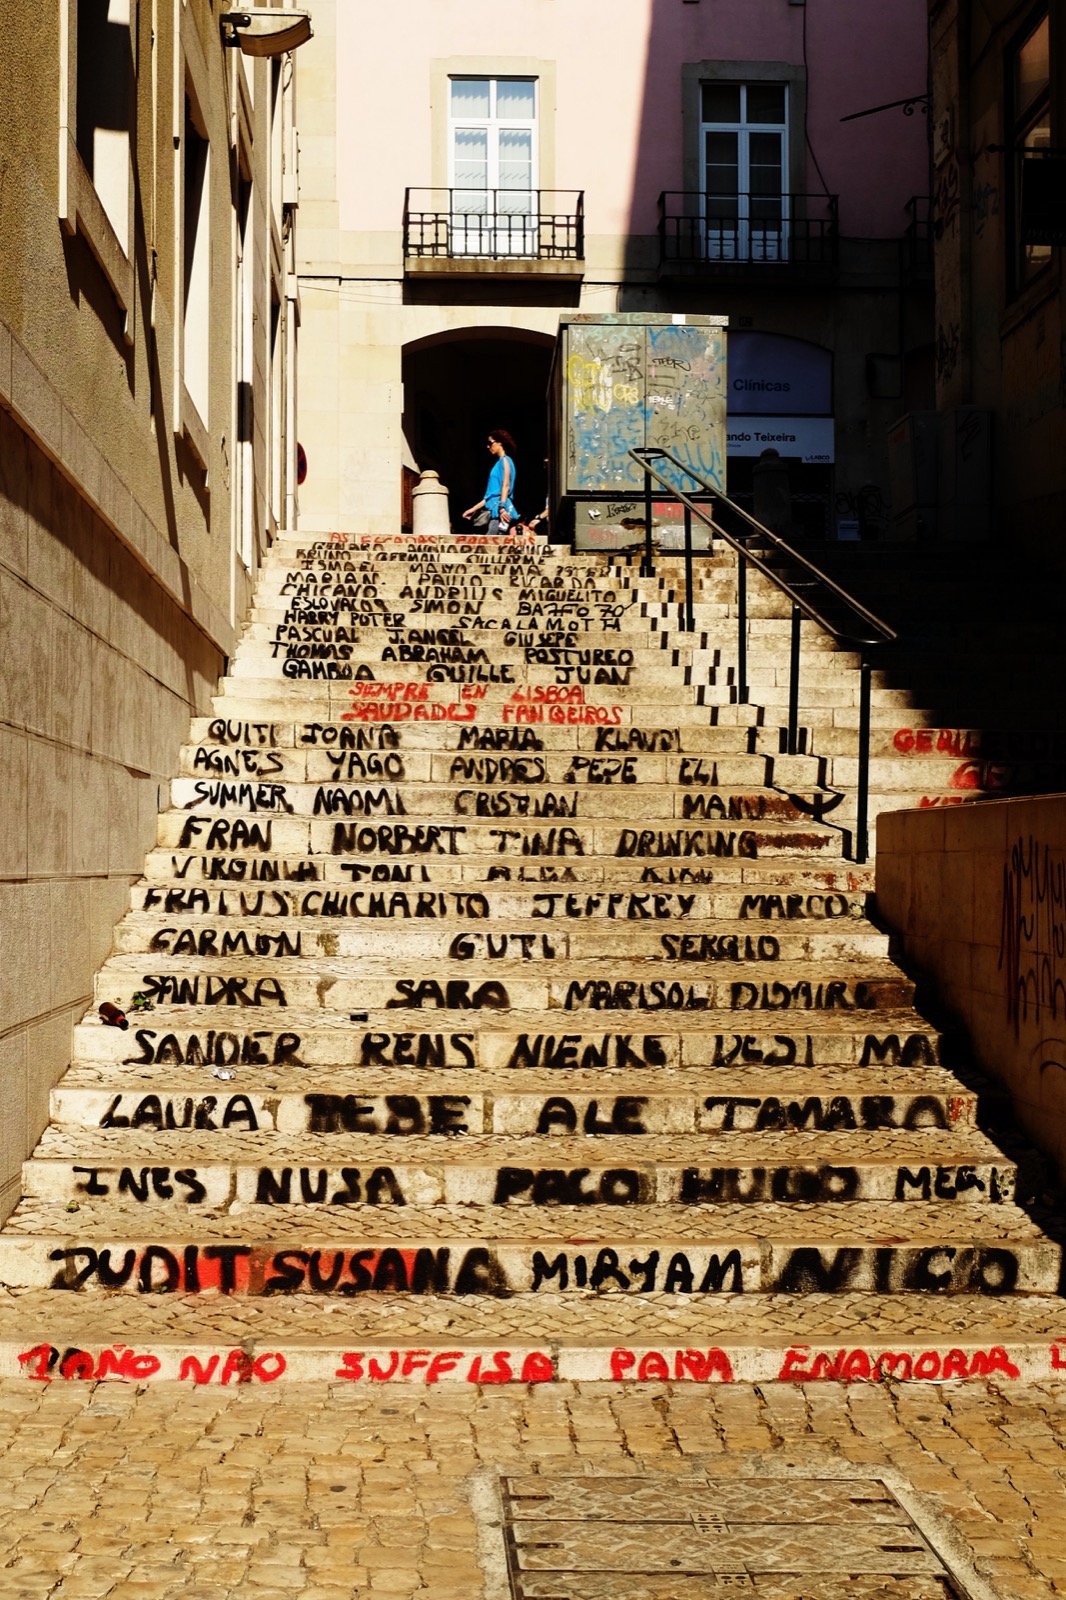 Clínicas
ando Teixeira
AS ESCADAS
BRUNO GERMAN GUILLERME
ISMAEL MAYO INMA
MARIAN PAULO RICARDO
CHICANO ANDRIUS MIGUELITO
ESLOVACOS SIMON
HARRY POTER SACALAMOTTA
PASCUAL J.ANGEL GIUSEPE
THOMAS ABRAHAM POSTUREO
GAMBOA GUILLE JUAN
SIEMPRE EN LISBOA
SAUDADES FANQEIROS
QUITI JOANA MARIA KLAUSI
AGNES YAGO ANDRES PEPE ELI
SUMMER NAOMI CRISTIAN MANU
FRAN NORBERT TINA DRINKING
VIRGINIA TONI ALBA KIKU
CHICHARITO JEFFREY MARCO
CARMON GUTI SERGIO
SANDRA SARA MARISOL
SANDER RENS NIENKE DESI MA
LAURA BEBE ALE TAMARA
INES NUSA PACO HUGO MEGI
DUDIT SUSANA MIRYAM NICO
1 AÑO NAO SUFFISA PARA ENAMORAR